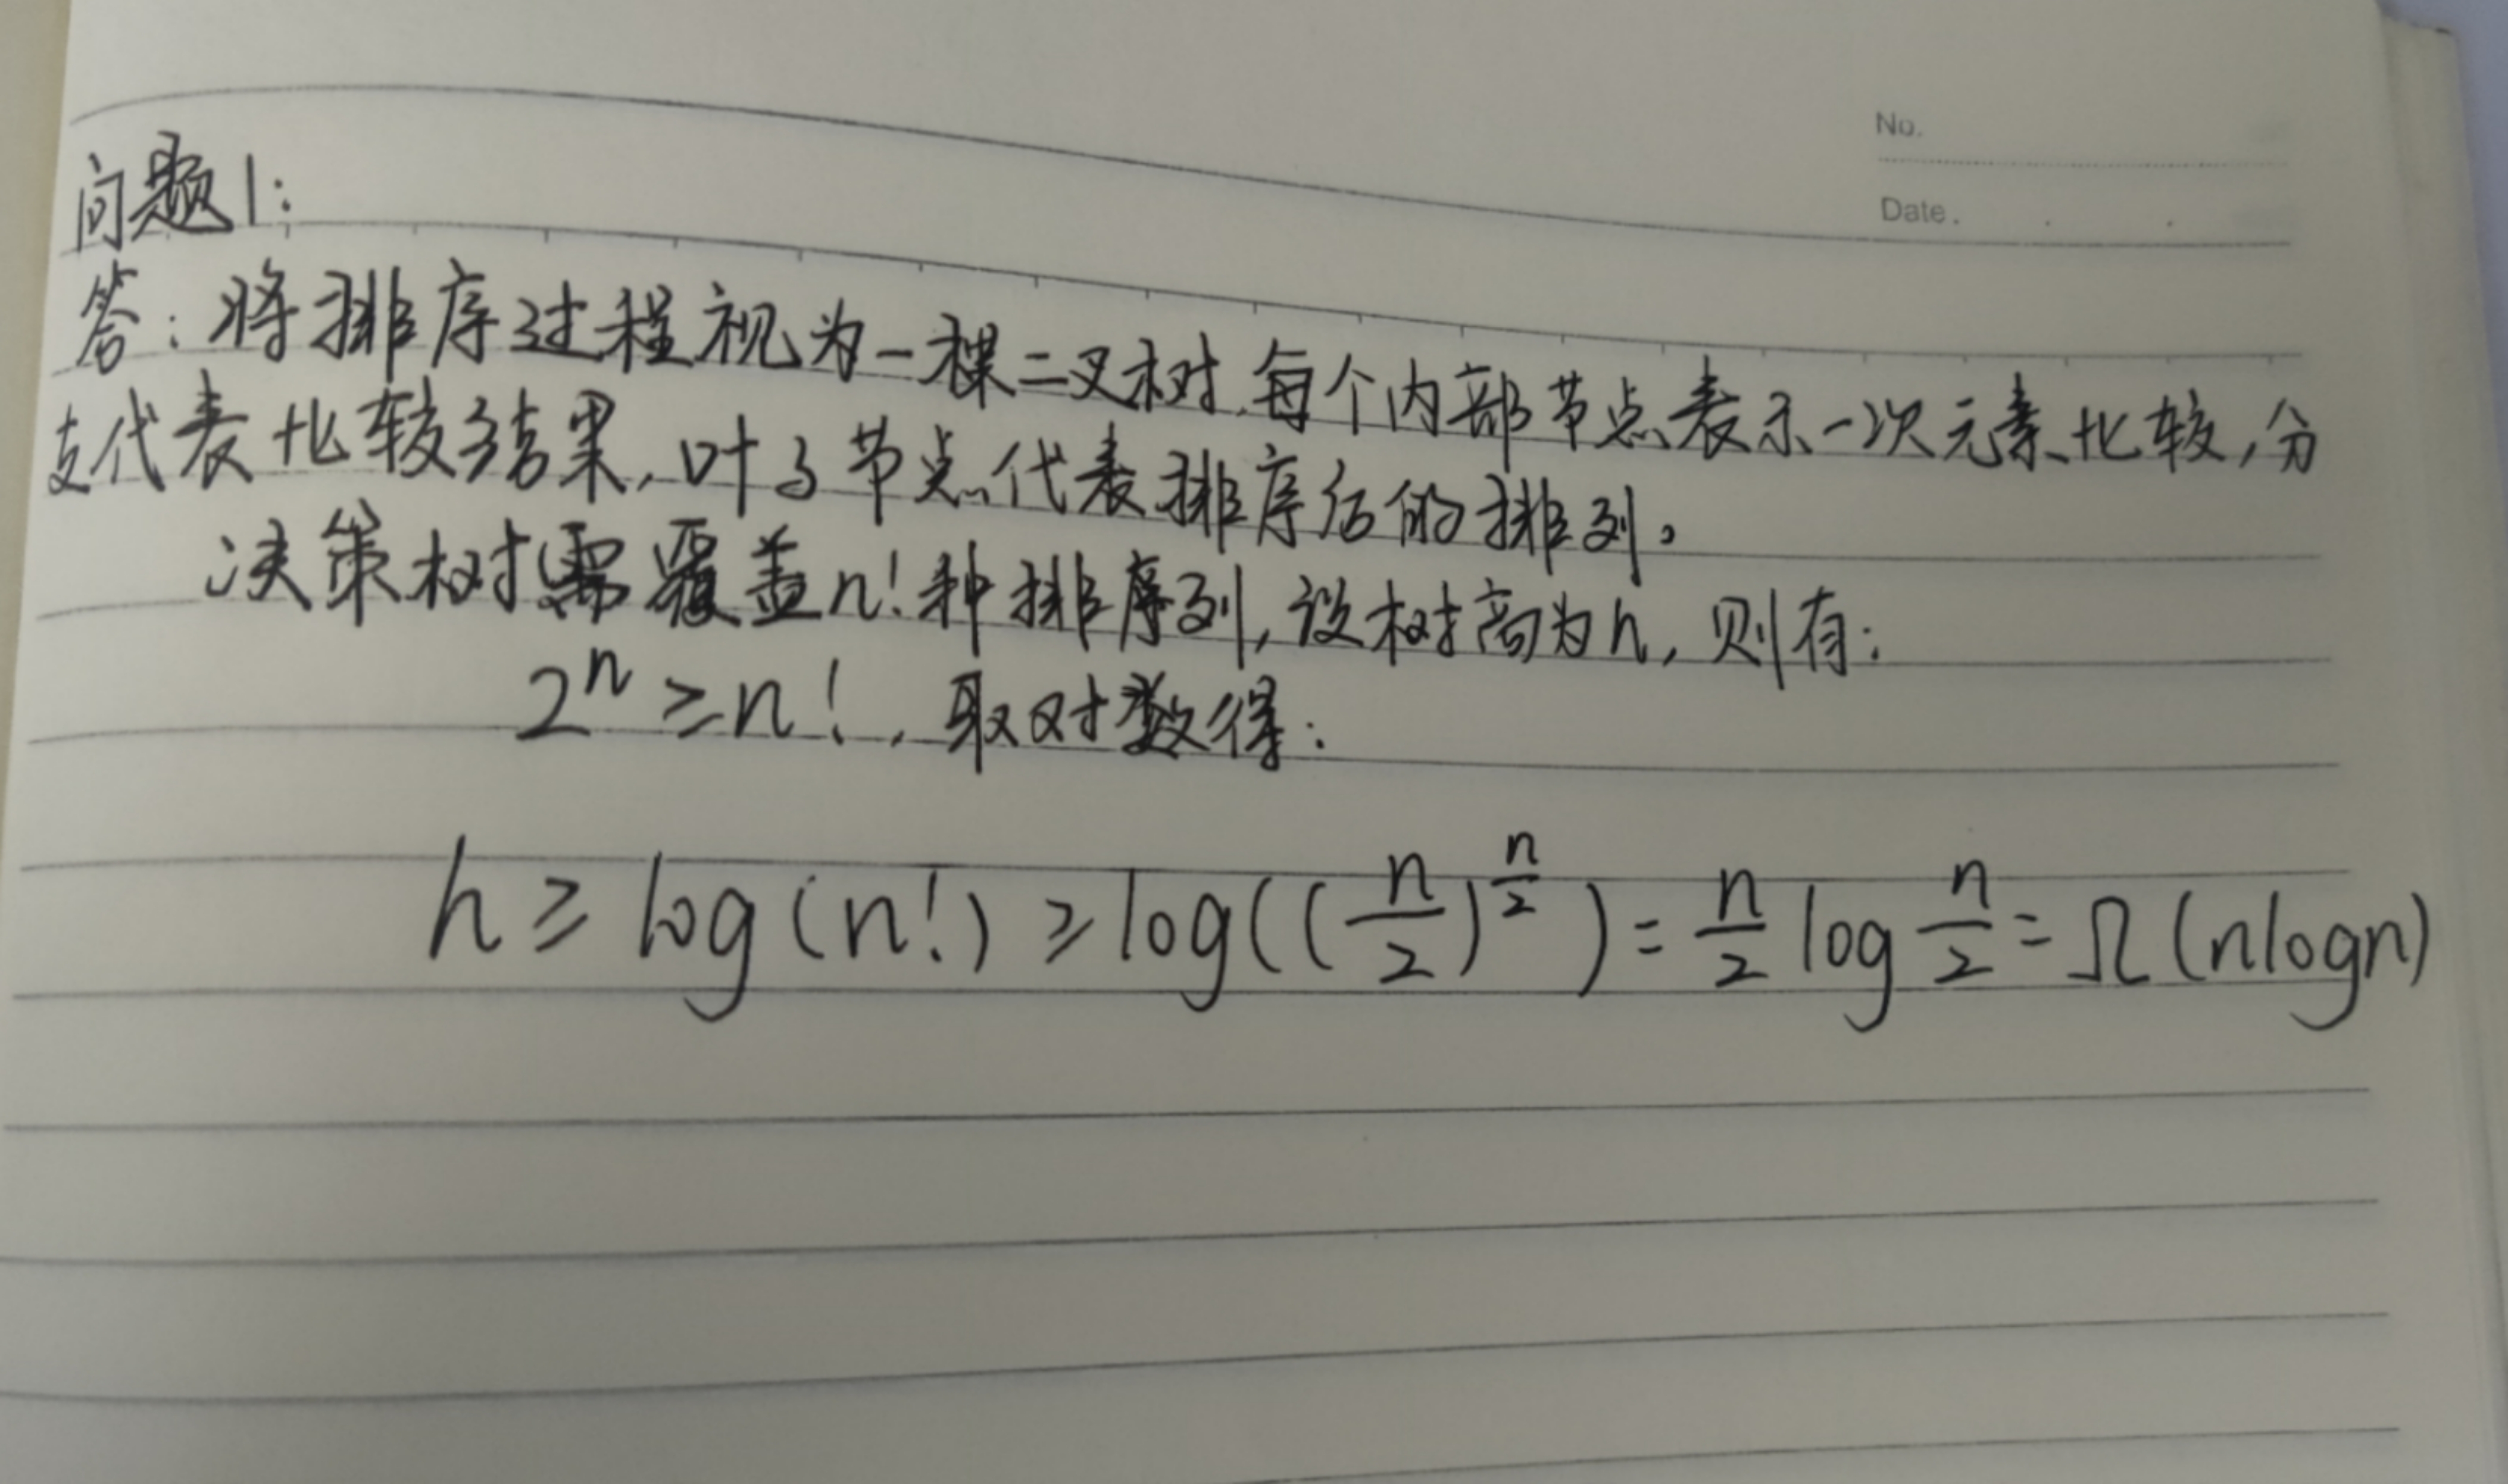 No.
Date.
问题1:
答:将排序过程视为一棵二叉树,每个内部节点表示一次元素比较,分
支代表比较结果,叶子节点代表排序后的排列。
决策树需覆盖n!种排序列,设树高为h,则有:
2^h ≥ n!,取对数得:
h ≥ log(n!) ≥ log((n/2)^(n/2)) = n/2 log n/2 = Ω(nlogn)